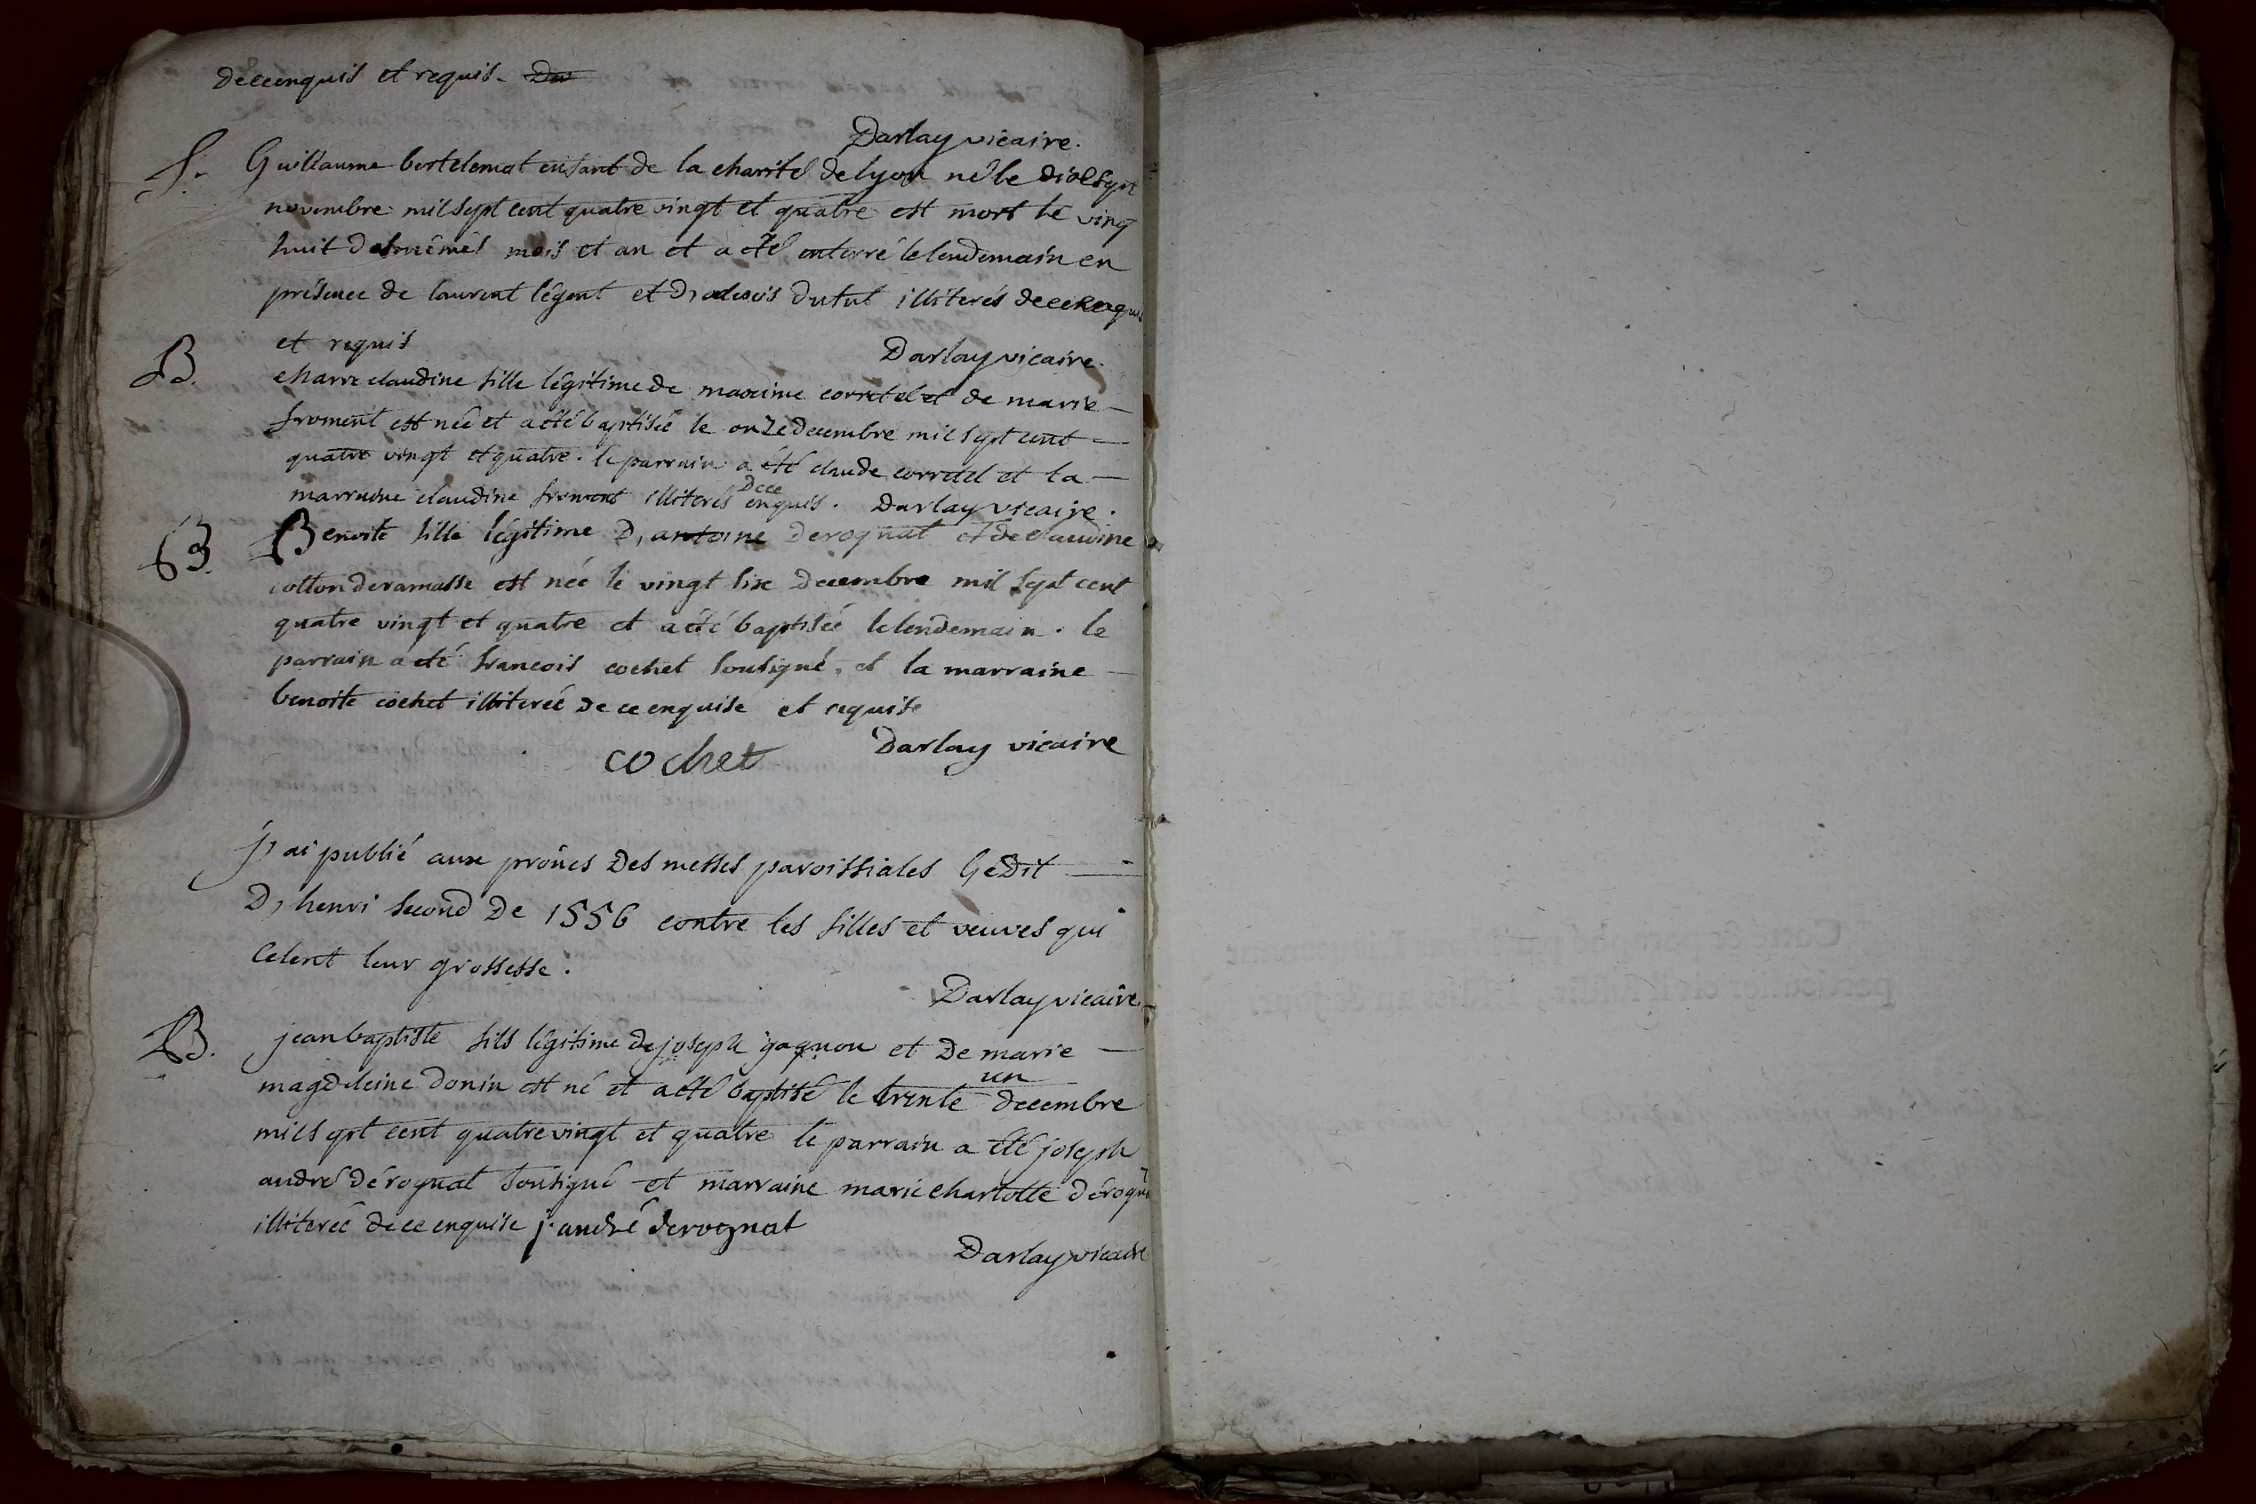 deceenquis et requis. Da
Darlay vicaire.
S. Guillaume bertelemot enfant de la charité de lyon né le dixsept
novembre mil sept cent quatre vingt et quatre est mort le vingt
huit desmêmes mois et an et a été enterré lelendemain en
présence de laurent légent et dutut illiterés deceenquis
et requis
Darlay vicaire.
B. claudine fille légitime de maxime corretel et de marie
froment est née et a été baptisée le onze decembre mil sept cent
quatre vingt et quatre. le parrain a été claude corretel et la
marraine claudine froment illiterés dece enquis. Darlay vicaire.
B. Benoite fille légitime D'antoine derognat et de claudine
cotton deramasse est née le vingt six decembre mil sept cent
quatre vingt et quatre et a été baptisée lelendemain. le
parrain a été francois cochet sousigné, et la marraine
benoite cochet illiterée de ce enquise et requise
cochet Darlay vicaire
j'ai publié aux prônes Des messes paroissiales l'eDit
D'henri second De 1556 contre les filles et veuves qui
celent leur grossesse.
Darlay vicaire
B. jean baptiste fils légitime de joseph gagnon et De marie
magdeleine donin est né et a été baptisé le trente un decembre
mil sept cent quatre vingt et quatre le parrain a été joseph
andré dérognat sousigné et marraine marie charlotte dérogn
illiterée de ce enquise j. andré derognat
Darlay vicaire